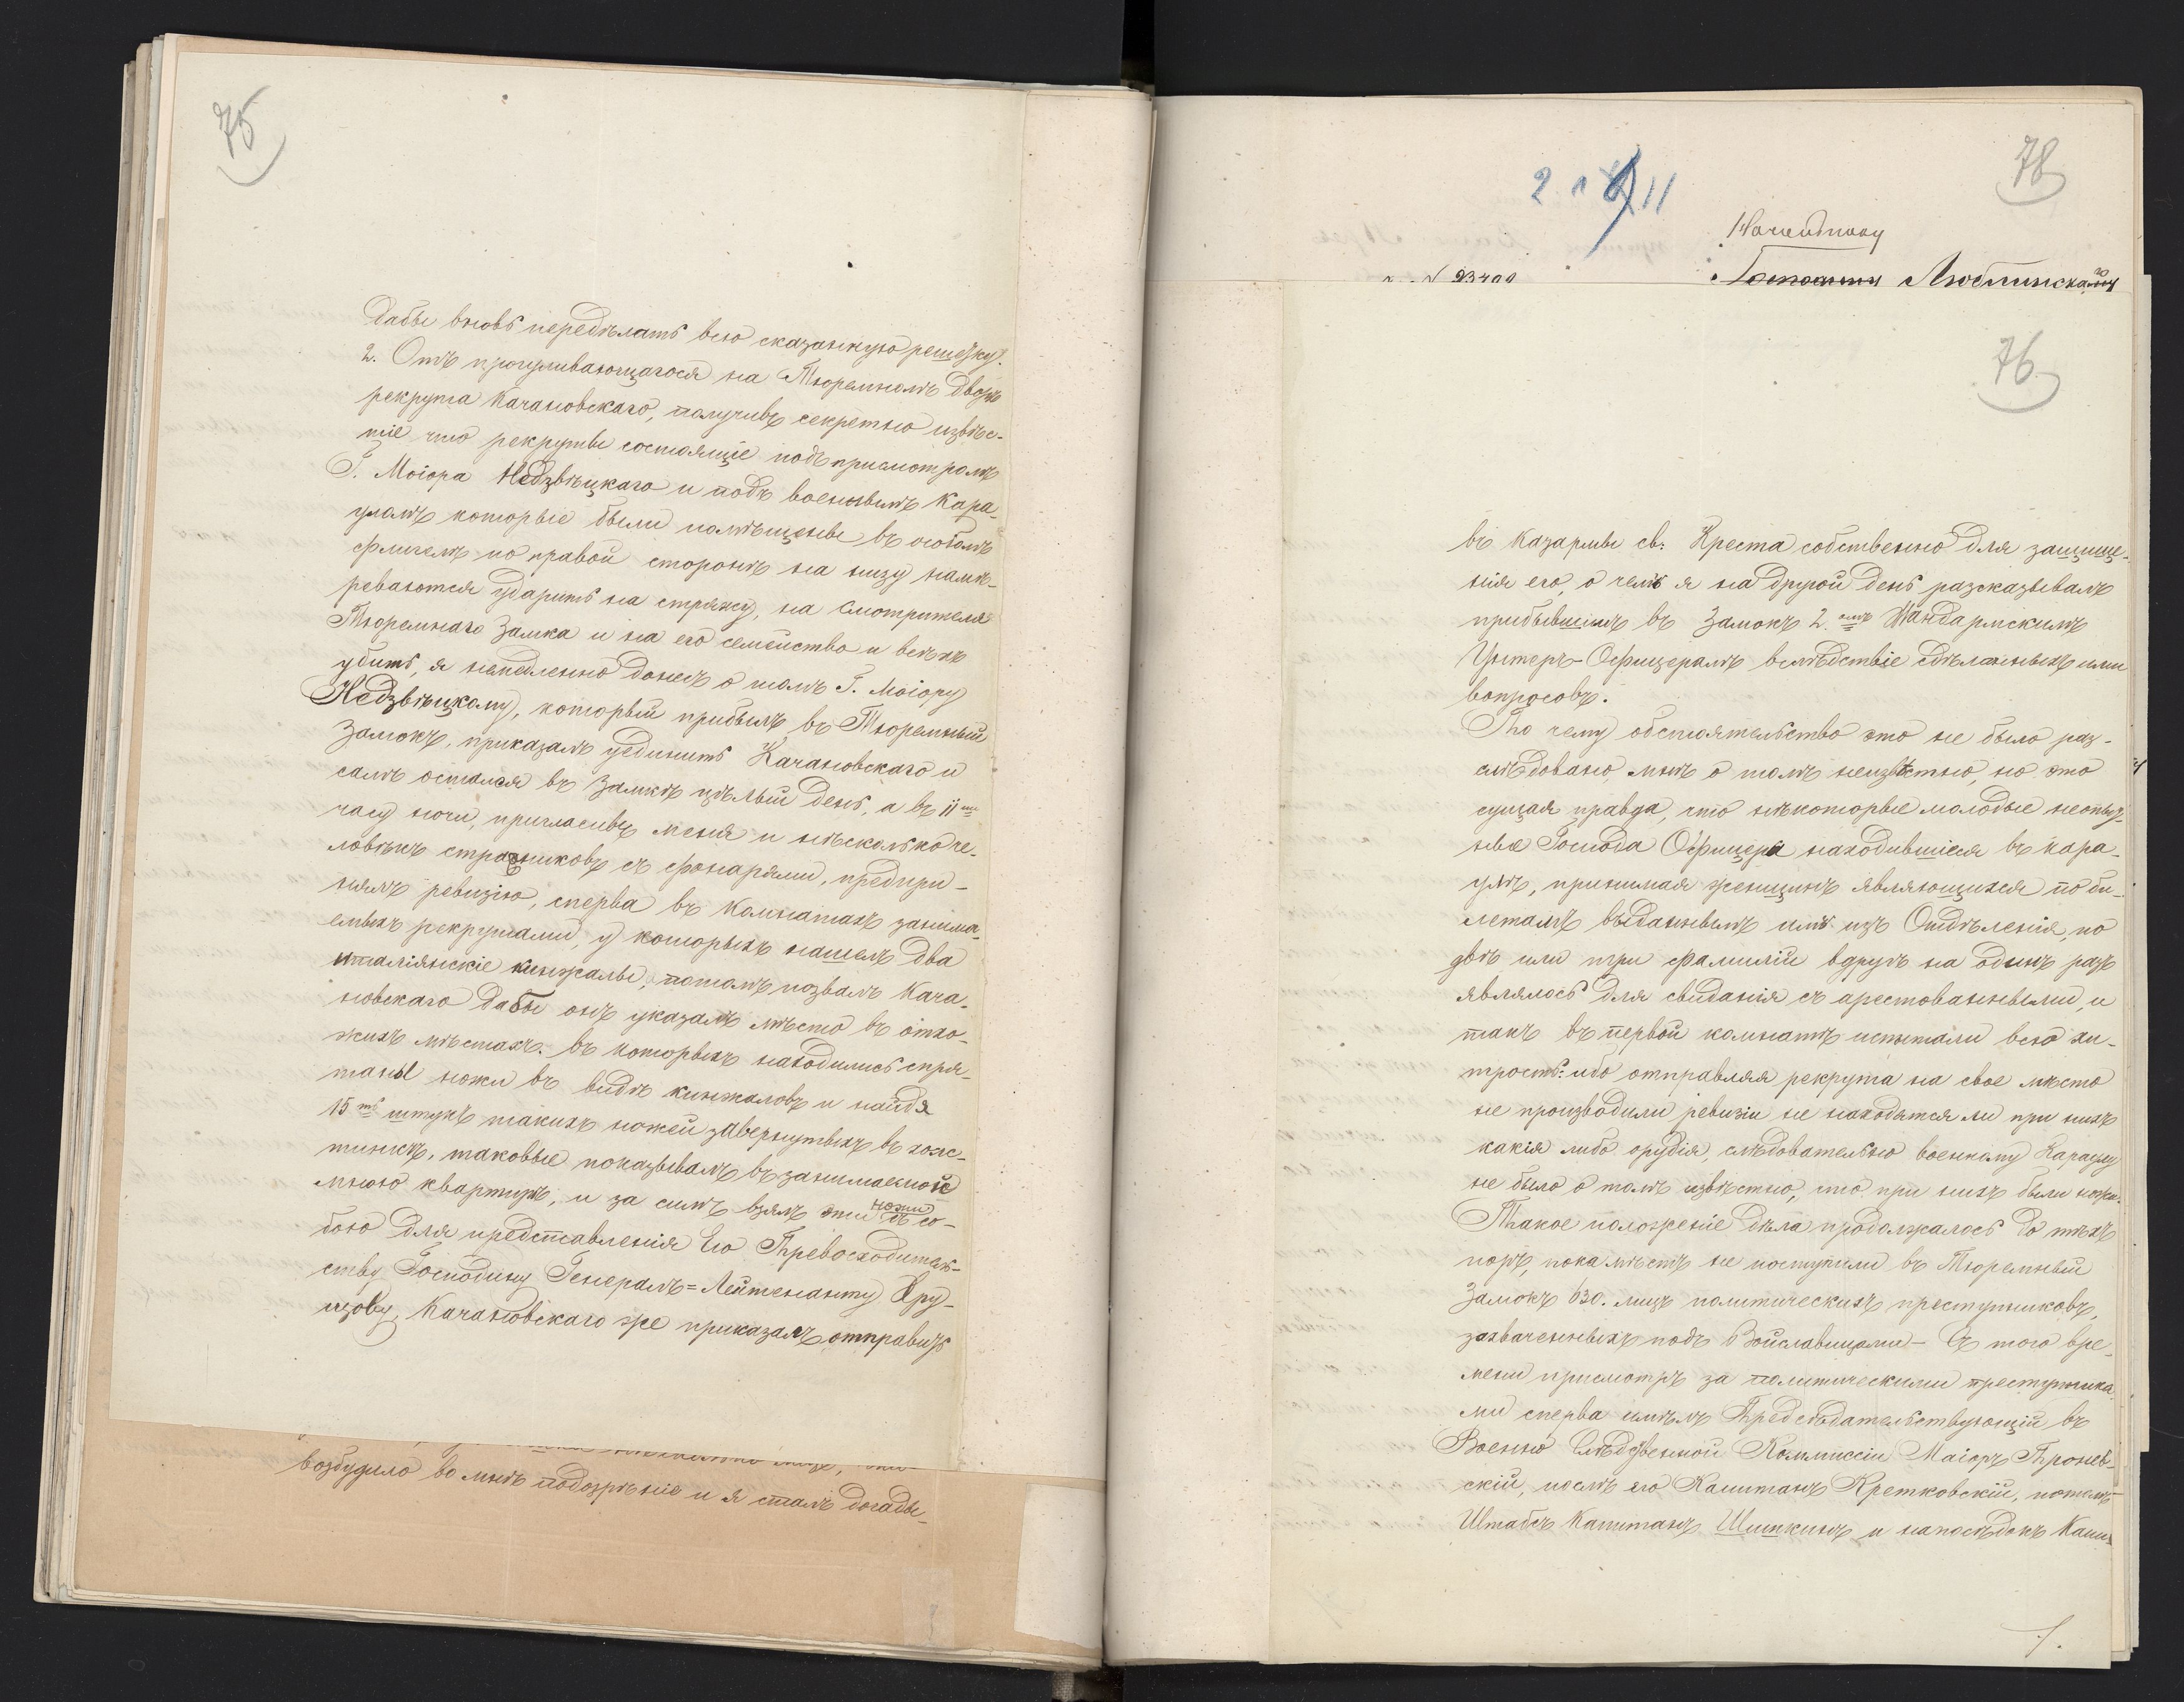 75
дабы вновь передѣлать всю сказанную решетку.
2. Отъ прогуливающагося на Тюремномъ дворѣ
рекрута Качановскаго, получивъ секретно извѣс-
тіе что рекруты состоящіе подъ присмотромъ
Г. Маіора Недзвѣцкаго и подъ военнымъ Кара-
уломъ которые были помѣщены въ особомъ
флигелѣ по правой сторонѣ на низу намѣ-
реваются ударить на стражу, на Смотрителя
Тюремнаго Замка и на его семейство и всѣхъ
убить, я немедленно донесъ о томъ Г. Маіору
Недзвѣцкому, который прибылъ въ Тюремный
Замокъ, приказалъ уединить Качановскаго и
самъ остался въ Замкѣ цѣлый день, а въ 11мъ
часу ночи, пригласивъ меня и нѣсколько че-
ловѣкъ стражниковъ съ фонарями, предпри-
нялъ ревизію, сперва въ комнатахъ занима-
емыхъ рекрутами, у которыхъ нашелъ два
италіянскіе кинжалы, потомъ позвалъ Кача-
новскаго дабы онъ указалъ мѣсто въ отхо-
жихъ мѣстахъ въ которыхъ находились спря-
таны ножи въ видѣ кинжаловъ и найдя
15ть штукъ такихъ ножей завернутыхъ въ холс-
тинкѣ, таковые показывалъ въ занимаемой
мною квартирѣ, и за симъ взялъ эти ножи съ со-
бою для представленія Его Превосходитель-
ству Господину Генералъ=Лейтенанту Хру-
щову, Качановскаго же приказалъ отправить
возбудило во мнѣ подозрѣніе и я сталъ догады-
78
2 11
Начальнику
N 23400
Люблинска го
76
въ казармы св. Креста собственно для защище-
нія его, о чемъ я на другой день разсказывалъ
прибывшимъ въ Замокъ 2.мъ Жандармскимъ
Унтеръ-Офицерамъ вслѣдствіе сдѣланныхъ ими
вопросовъ.
По чему обстоятельство это не было раз-
слѣдовано мнѣ о томъ неизвѣстно, но это
сущая правда, что нѣкоторые молодые неопыт-
ные Господа Офицера находившіеся въ кара-
улѣ, принимая женщинъ являющихся по би-
летамъ выданнымъ имъ изъ Отдѣленія, по
двѣ или три фамиліи вдругъ на одинъ разъ
являлось для свиданія съ арестованными, и
такъ въ первой комнатѣ испытали всю хи-
трость: ибо отправляя рекрута на свое мѣсто
не производили ревизіи не находятся ли при нихъ
какія либо орудія, слѣдовательно военному Караулу
не было о томъ извѣстно, что при нихъ были ножи.
Такое положеніе дѣла продолжалось до тѣхъ
поръ, пока мѣстъ не поступили въ Тюремный
Замокъ 630. лицъ политическихъ преступниковъ,
захваченныхъ подъ Войславицами - Съ того вре-
мени присмотръ за политическими преступника-
ми сперва имѣлъ Предсѣдательствующій въ
Военно Слѣдственной Коммиссіи Маіоръ Проне
скій, послѣ его Капитанъ Кретковскій, потомъ
Штабсъ Капитанъ Шишкинъ и напослѣдокъ Капи